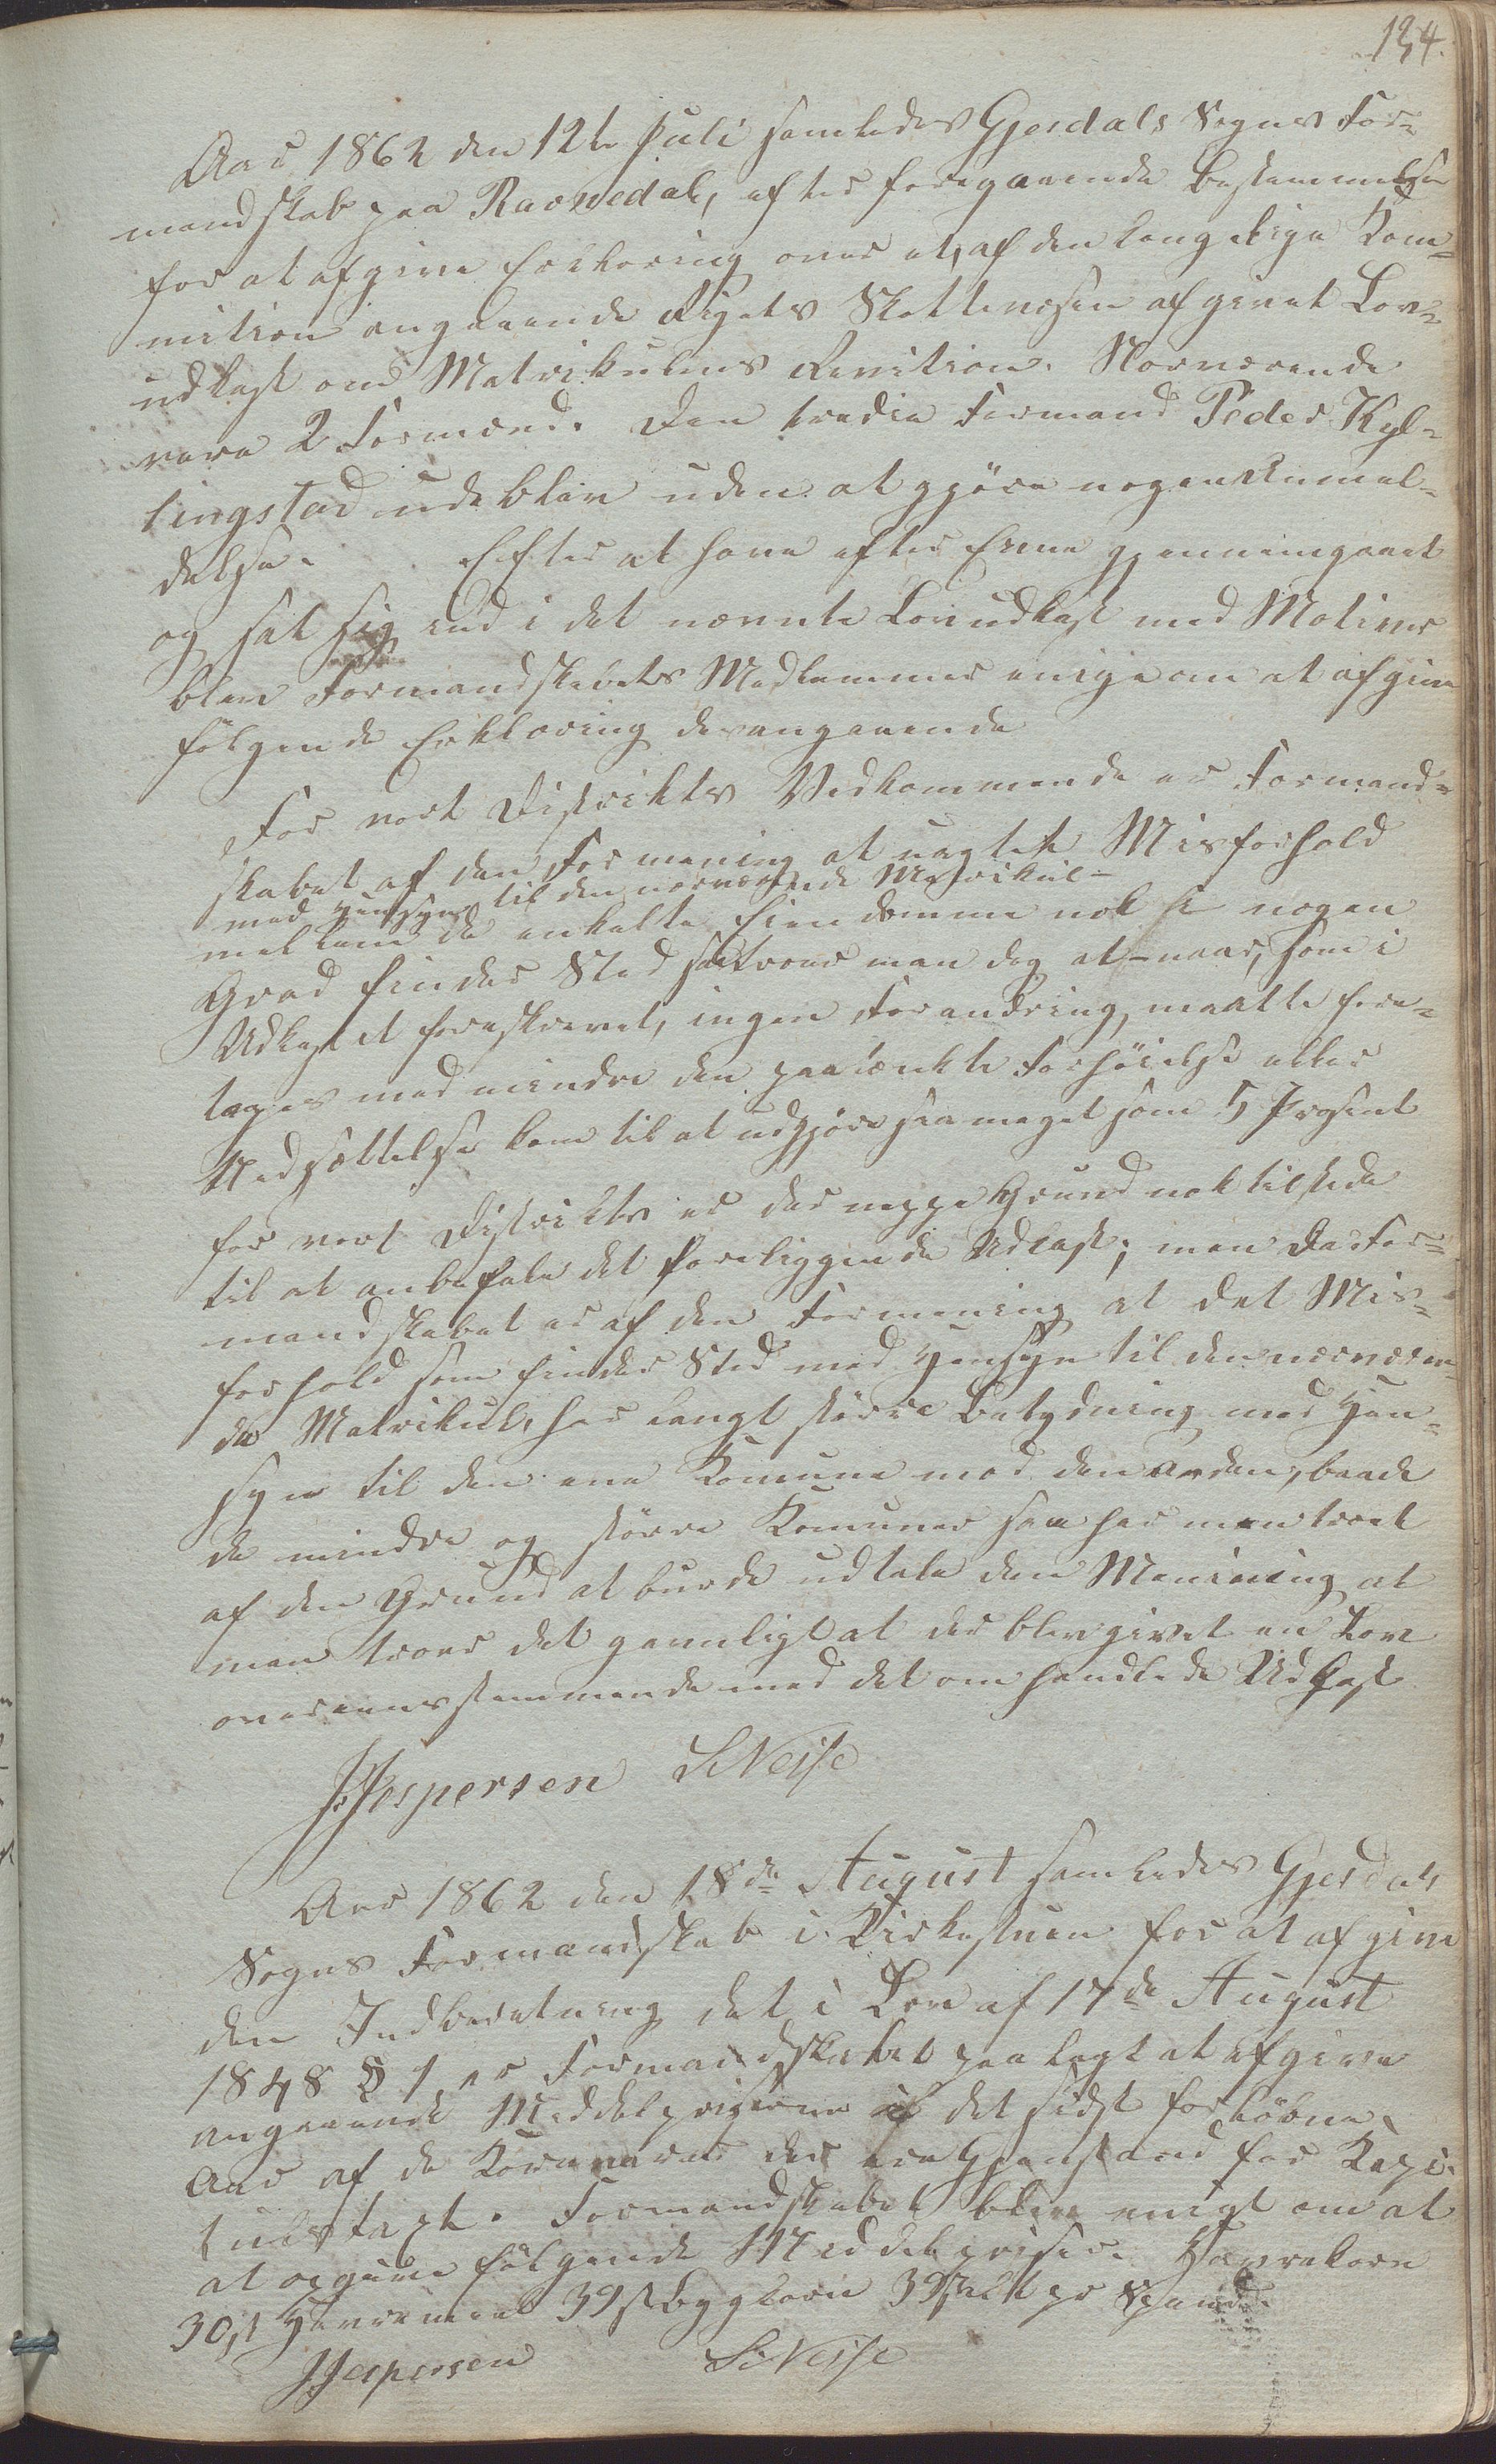 134.
Aar 1862 den 12te Juli samledes Gjesdals Sogns For-
mandskab paa Ravndal, efter foregaaende Bestemmelse
for at afgive Erklæring over et, af den kongelige Kom-
mition angaaende Rigets Skattevæsen afgivet Lov-
udkast om Matrikulens Revition. Nærværende
vare 2 Formænd. Den tredie Formand Peder Kyl-
lingstad udeblev uden at gjöre nogen Anmel-
delse. Efter at have efter Evne gjennemgaaet
og sat sig ind i det nævnte Lovudkast med Motiver
blev Formandskabets Medlemmer enige om at afgive
fölgende Erklæring desangaaende
For vort Distrikts Vedkommende er Formand-
skabet af den Formening at uagtet Misforhold
med Hensyn til den nærværende Matrikul
mellem de enkelte Eiendomme nok i nogen
Grad finder Sted saa troer man dog at naar, som i
Udkastet foreskrevet, ingen Forandring maatte fore-
tages med mindre den paatænkte Forhöielse eller
Nedsættelse kom til at udgjöre saa meget som 5 Prosent
for vort Distrikt er der neppe Grund nok tilstede
til at anbefale det foreliggende Udkast; men da For-
mandskabet er af den Formening at det Mis-
forhold som finder Sted med Hensyn til den nærværen-
de Matrikul, har langt större Betydning med Hen-
syn til den ene Komune mod den anden, baade
de mindre og större Komuner saa har man troet
af den Grund at burde udtale den Menining at
man troer det gavnligt at der blev givet en Lov
overeensstemmende med det omhandlede Udkast
J. Jespersen S. Nesse
Aar 1862 den 18de August samledes Gjesdals
Sogns Formandskab i Kirkestuen for at afgive
den Indberetning det i Lov af 17de August
1848 § 1 er Formandskabet paalagt at afgive
angaaende Middelpriserne af det sidst forlöbne
Aar af de Kornvarer der ere Gjenstand for Kapi-
tulstaxt. Formandskabet blev enigt om at
at opgive fölgende Middelpriser. Havrekorn
30 ß Havremeel 39 ß Bygkorn 39 ß alt pr Spand.
J. Jespersen S. Nesse